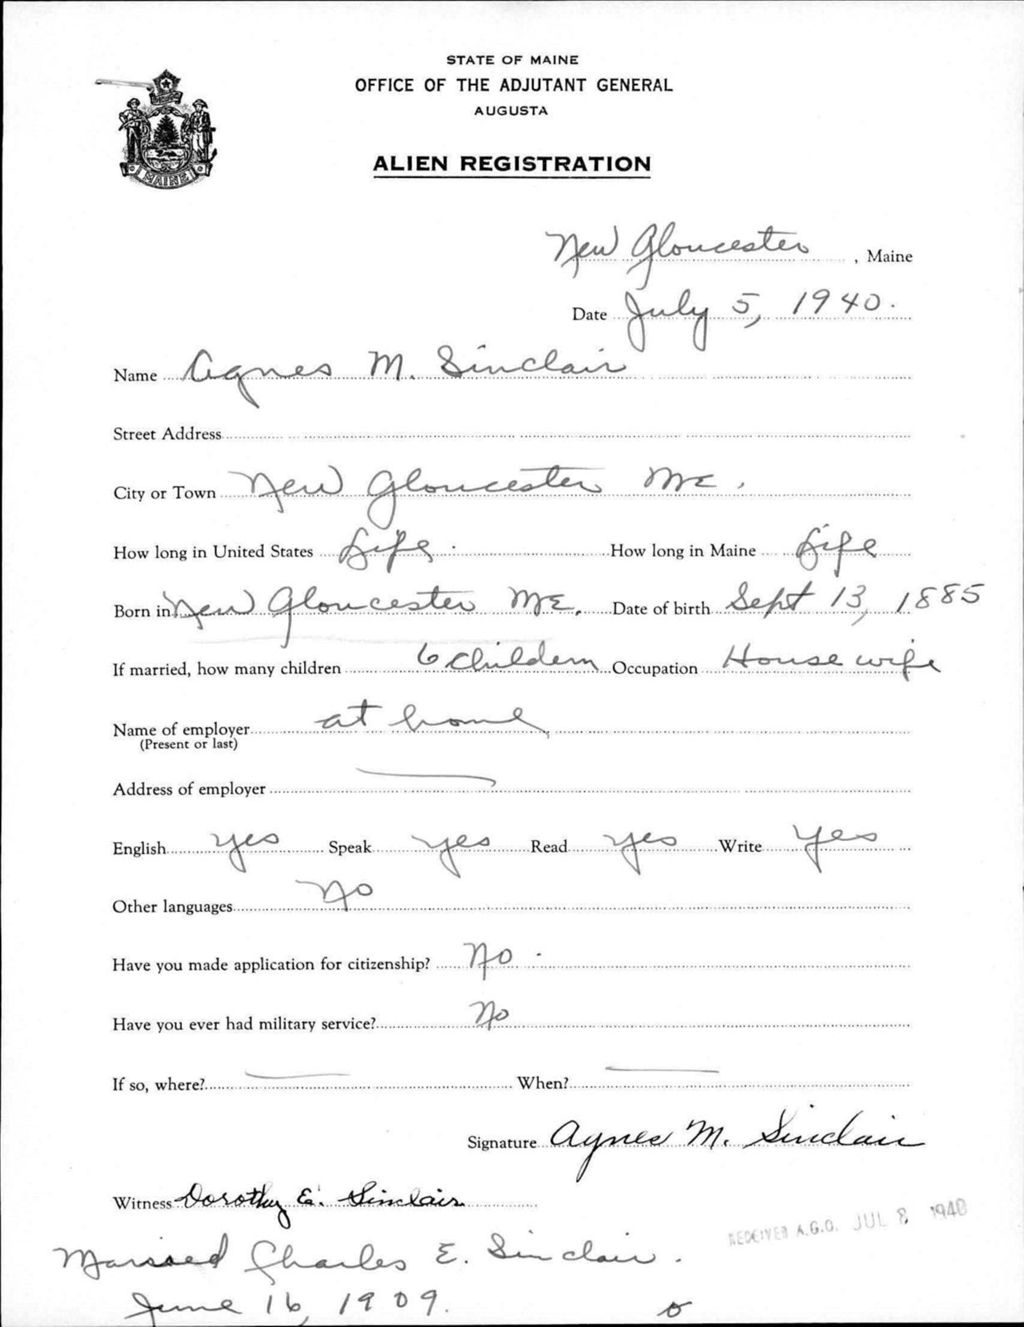 STATE OF MAINE
OFFICE OF THE ADJUTANT GENERAL
AUGUSTA
ALIEN REGISTRATION
MAINE
New Gloucester, Maine
Date July 5, 1940.
Name Agnes M. Sinclair
Street Address
City or Town New Gloucester Me.
How long in United States Life. How long in Maine Life
Born in New Gloucester Me. Date of birth Sept 13, 1885
If married, how many children 6 Childern Occupation House wife
Name of employer at home
(Present or last)
Address of employer
English yes Speak yes Read yes Write yes
Other languages No
Have you made application for citizenship? No.
Have you ever had military service? No
If so, where? When?
Signature Agnes M. Sinclair
Witness Dorothy E. Sinclair
RECEIVED A.G.O. JUL 8 1940
Married Charles E. Sinclair.
June 16, 1909.